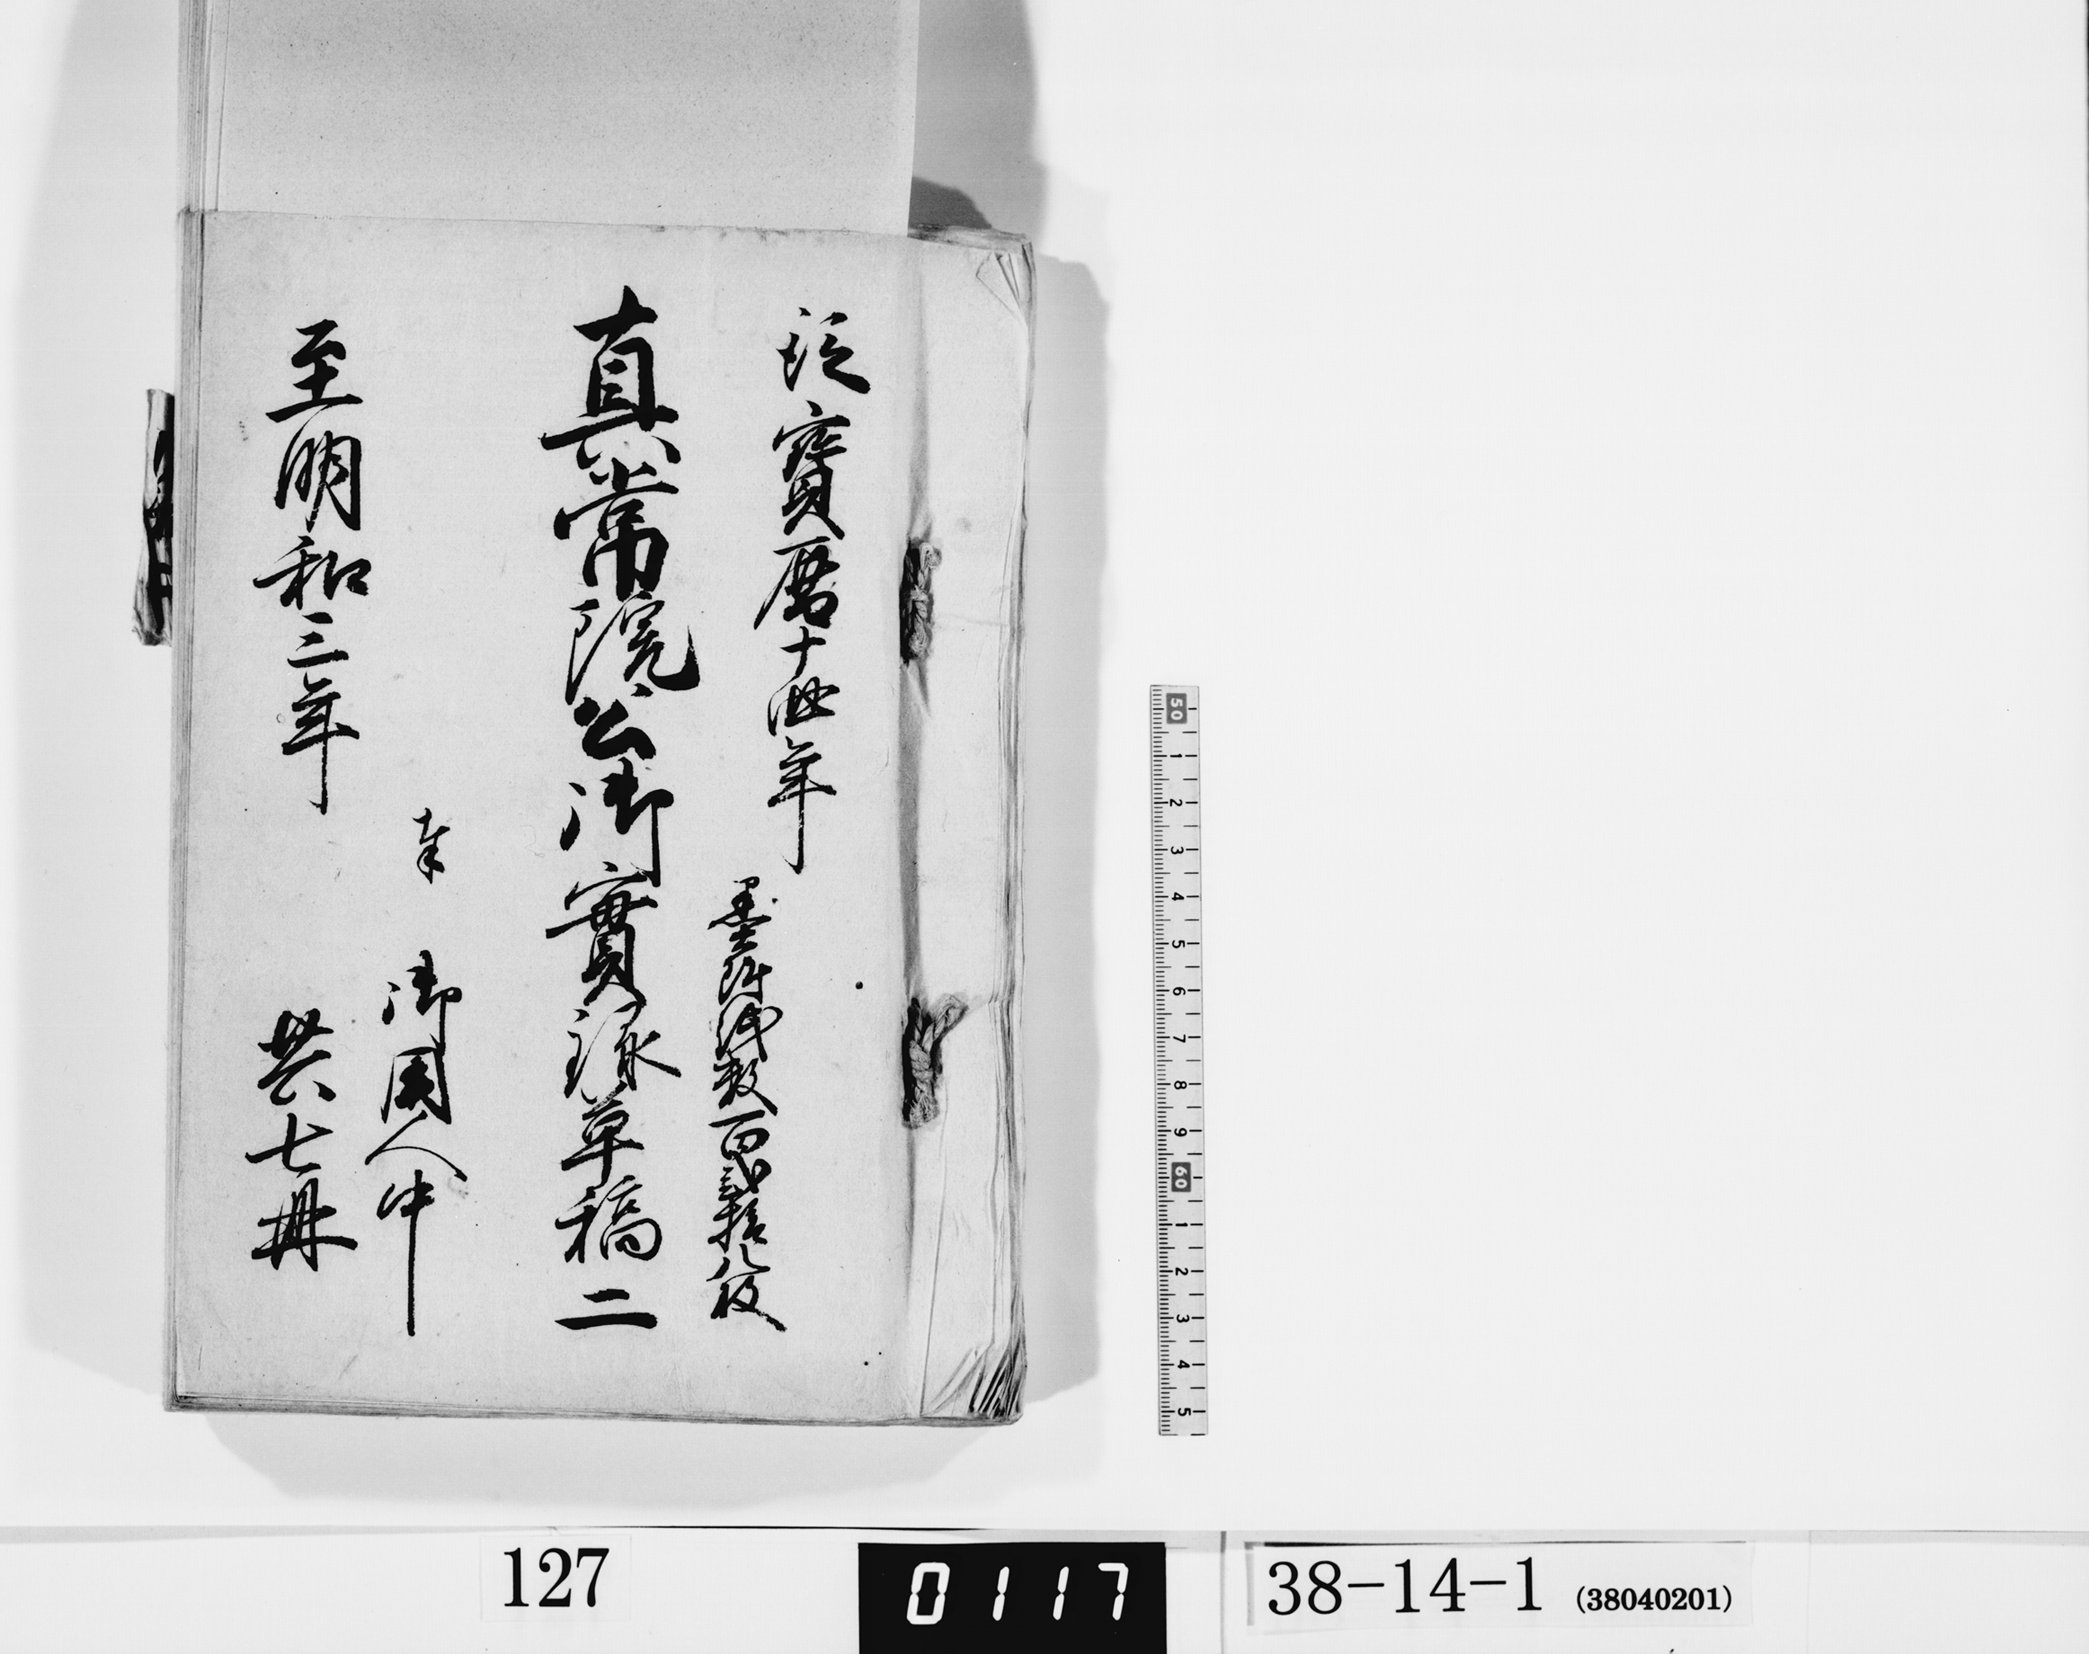 從寶暦十四年
墨附紙数百弐拾枚
真常院公御實録草稿 二
御用人中
至明和三年
共七冊
50 1 2 3 4 5 6 7 8 9 60 1 2 3 4 5
127
0117
38-14-1 (38040201)